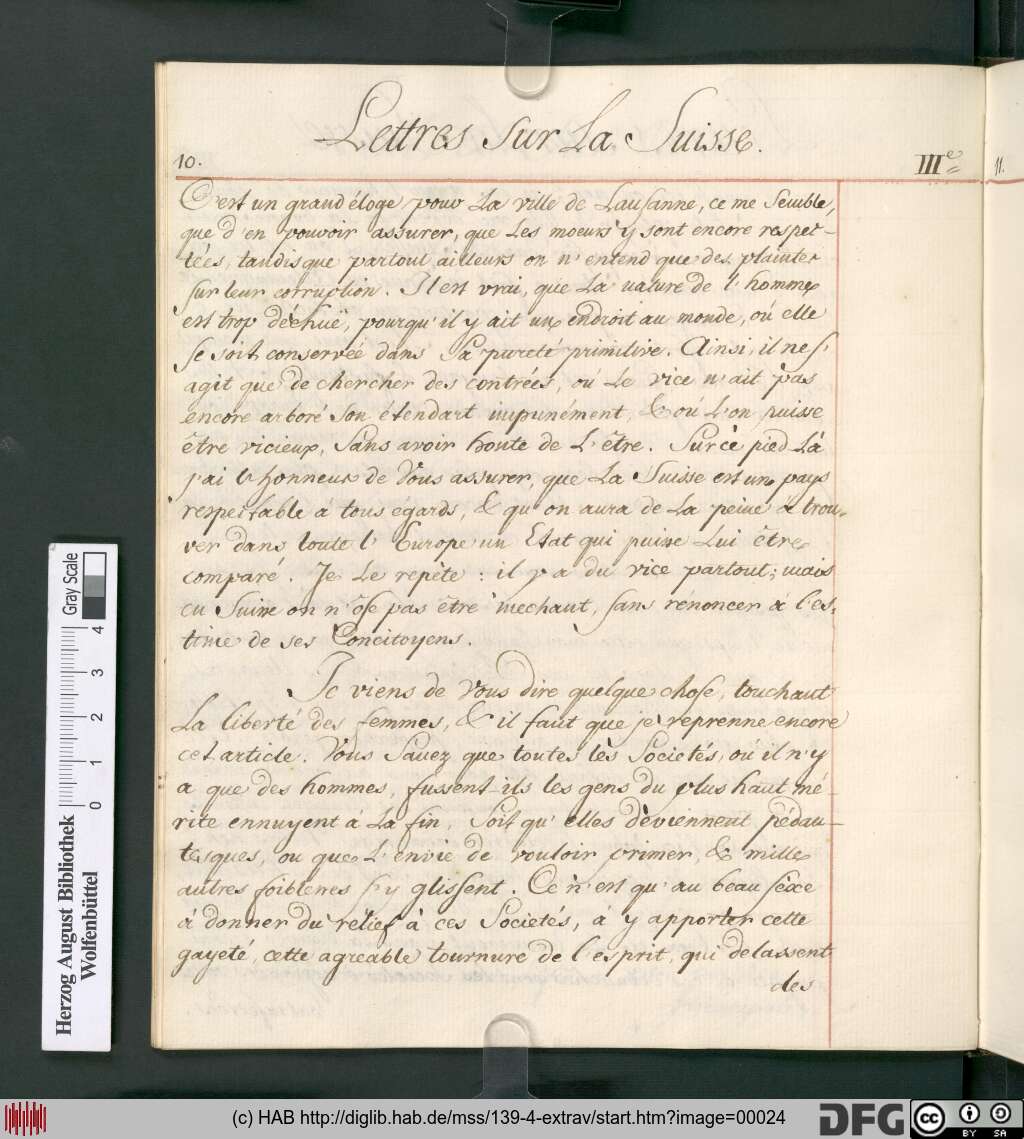 Lettres sur La Suisse.
10.
IIIe
11.
C'est un grand éloge pour La ville de Lausanne, ce me semble,
que d'en pouvoir assurer, que Les moeurs y sont encore respec-
tées, tandisque partout ailleurs on n'entend que des plaintes
sur leur corruption. Il est vrai, que La nature de l'homme
est trop déchuë, pourqu'il y ait un endroit au monde, où elle
se soit conservée dans Sa pureté primitive. Ainsi, il ne s'
agit que de chercher des contrées, où Le vice n'ait pas
encore arboré Son étendart impunément, & où L'on puisse
être vicieux, Sans avoir honte de L'être. Sur cè pied-Là
j'ai l'honneur de Vous assurer, que La Suisse est un pays
respectable à tous égards, & qu'on aura de La peine à trou-
ver dans toute l'Europe un Etat qui puisse Lui être
comparé. Je Le repète: il y a du vice partout; mais
en Suisse on n'ôse pas être mechant, sans rénoncer à l'es-
time de ses Concitoyens.
Je viens de Vous dire quelque chose, touchant
La liberté des femmes, & il faut que je reprenne encore
cet article. Vous Savez que toutes lès Societés, où il n'y
a que des hommes, fussent-ils les gens du plus haut mé-
rite ennuyent à La fin, Soit qu'elles déviennent pédan-
tesques, ou que L'envie de vouloir primer, & mille
autres foiblesses s'y glissent. Ce n'est qu'au beau sèxe
à donner du rélief à ces Societés, à y apporter cette
gayeté, cette agreable tournure de l'esprit, qui delassent
des
Herzog August Bibliothek
Wolfenbüttel
0 1 2 3 4
Gray Scale
(c) HAB http://diglib.hab.de/mss/139-4-extrav/start.htm?image=00024
DFG
cc BY SA